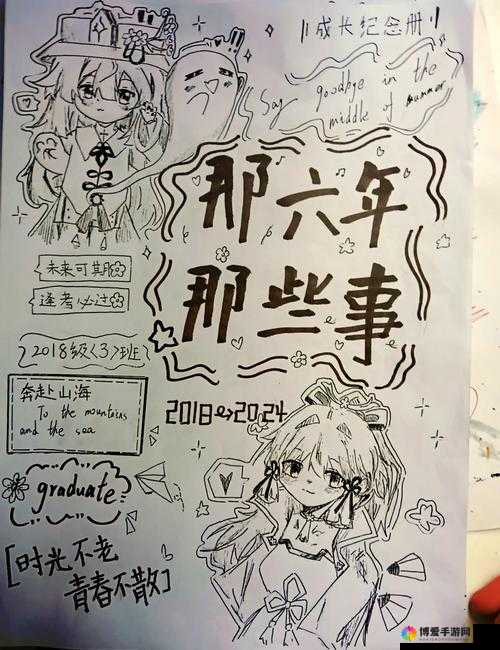 成长纪念册
Say goodbye in the
middle of summer
那六年
那些事
未来可期
逢考必过
2018级<3>班
奔赴山海
To the mountains
and the sea
2018→2024
graduate
[时光不老
青春不散]
博爱手游网